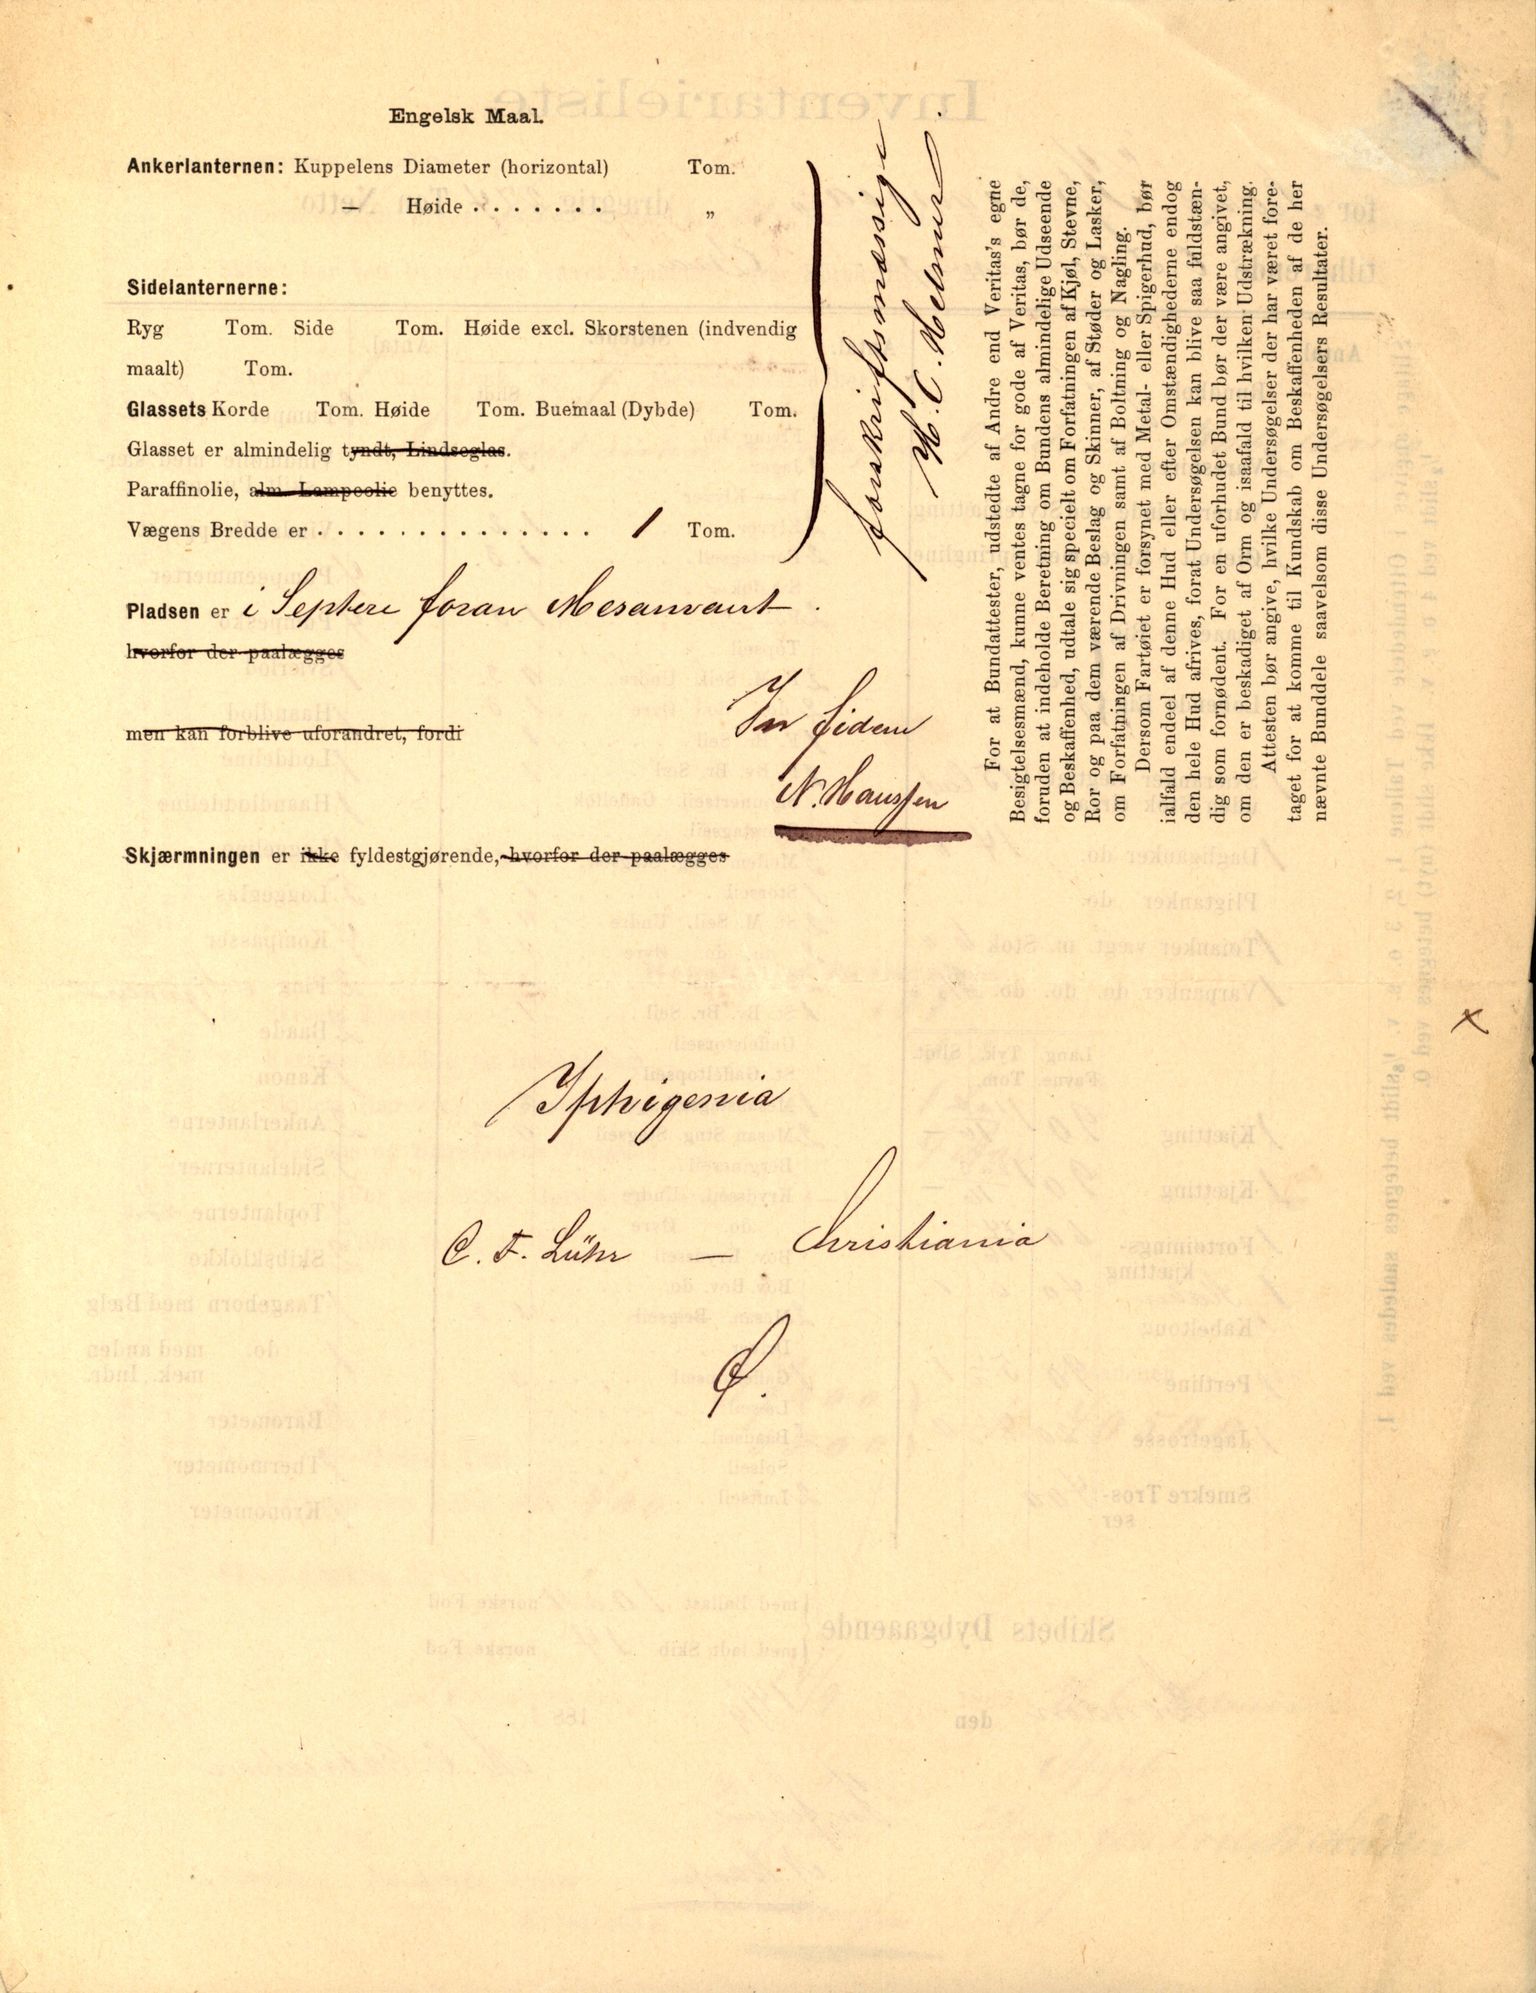 Engelsk Maal.
Ankerlanternen: Kuppelens Diameter (horizontal) Tom.
— Høide . . . . . . . "
Sidelanternerne:
Ryg Tom. Side Tom. Høide excl. Skorstenen (indvendig
maalt) Tom.
Glassets Korde Tom. Høide Tom. Buemaal (Dybde) Tom.
Glasset er almindelig tyndt, Lindseglas.
Paraffinolie, alm. Lampeolie benyttes.
Vægens Bredde er . . . . . . . . . . . . . . . 1 Tom.
forskriftsmæssige
Pladsen er i Septere foran Mesanvant.
hvorfor der paalægges
men kan forblive uforandret, fordi
In fidem
N. Hanssen
Skjærmningen er ikke fyldestgjørende, hvorfor der paalægges
For at Bundattester, udstedte af Andre end Veritas's egne
Besigtelsesmænd, kunne ventes tagne for gode af Veritas, bør de,
foruden at indeholde Beretning om Bundens almindelige Udseende
og Beskaffenhed, udtale sig specielt om Forfatningen af Kjøl, Stevne,
Ror og paa dem værende Beslag og Skinner, af Støder og Lasker,
om Forfatningen af Drivningen samt af Boltning og Nagling.
Dersom Fartøiet er forsynet med Metal- eller Spigerhud, bør
ialfald endeel af denne Hud eller efter Omstændighederne endog
den hele Hud afrives, forat Undersøgelsen kan blive saa fuldstæn-
dig som fornødent. For en uforhudet Bund bør der være angivet,
om den er beskadiget af Orm og isaafald til hvilken Udstrækning.
Attesten bør angive, hvilke Undersøgelser der har været fore-
taget for at komme til Kundskab om Beskaffenheden af de her
nævnte Bunddele saavelsom disse Undersøgelsers Resultater.
x
Iphigenia
C. F. Lühr — Christiania
Ø.